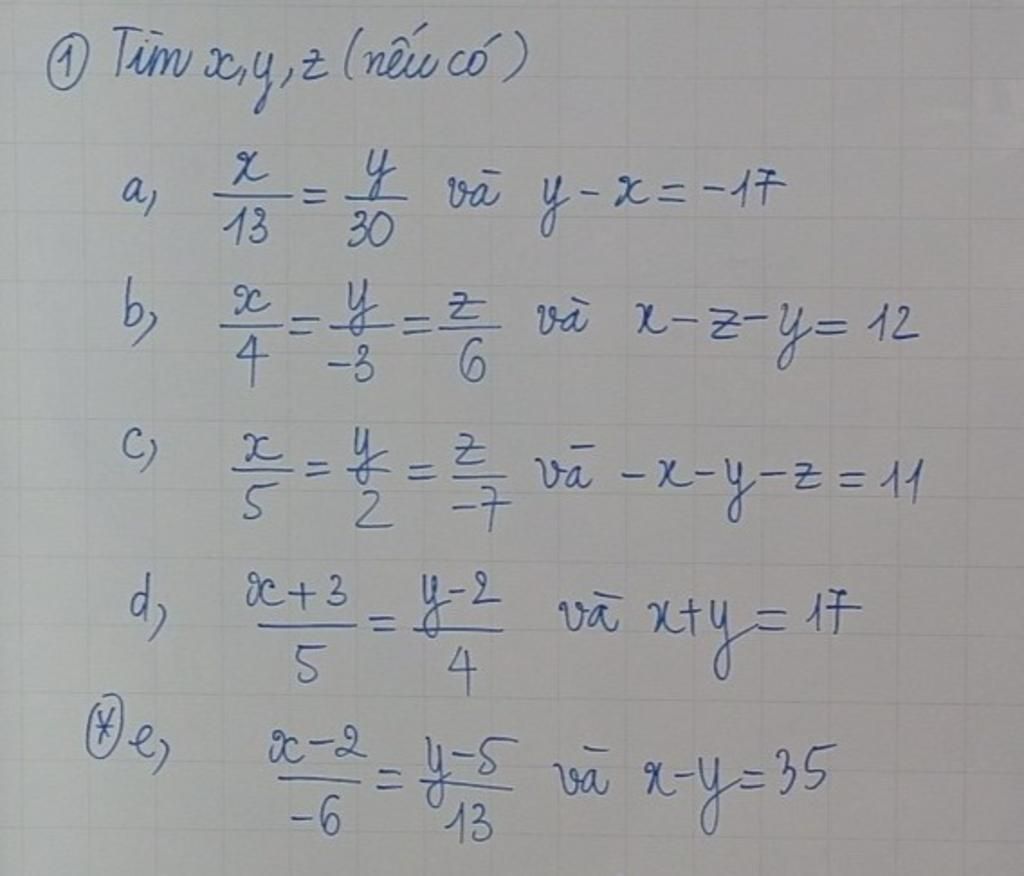 ① Tìm x, y, z (nếu có)
a, x/13 = y/30 và y - x = -17
b, x/4 = y/-3 = z/6 và x - z - y = 12
c, x/5 = y/2 = z/-7 và -x - y - z = 11
d, x+3/5 = y-2/4 và x+y = 17
(*) e, x-2/-6 = y-5/13 và x-y = 35